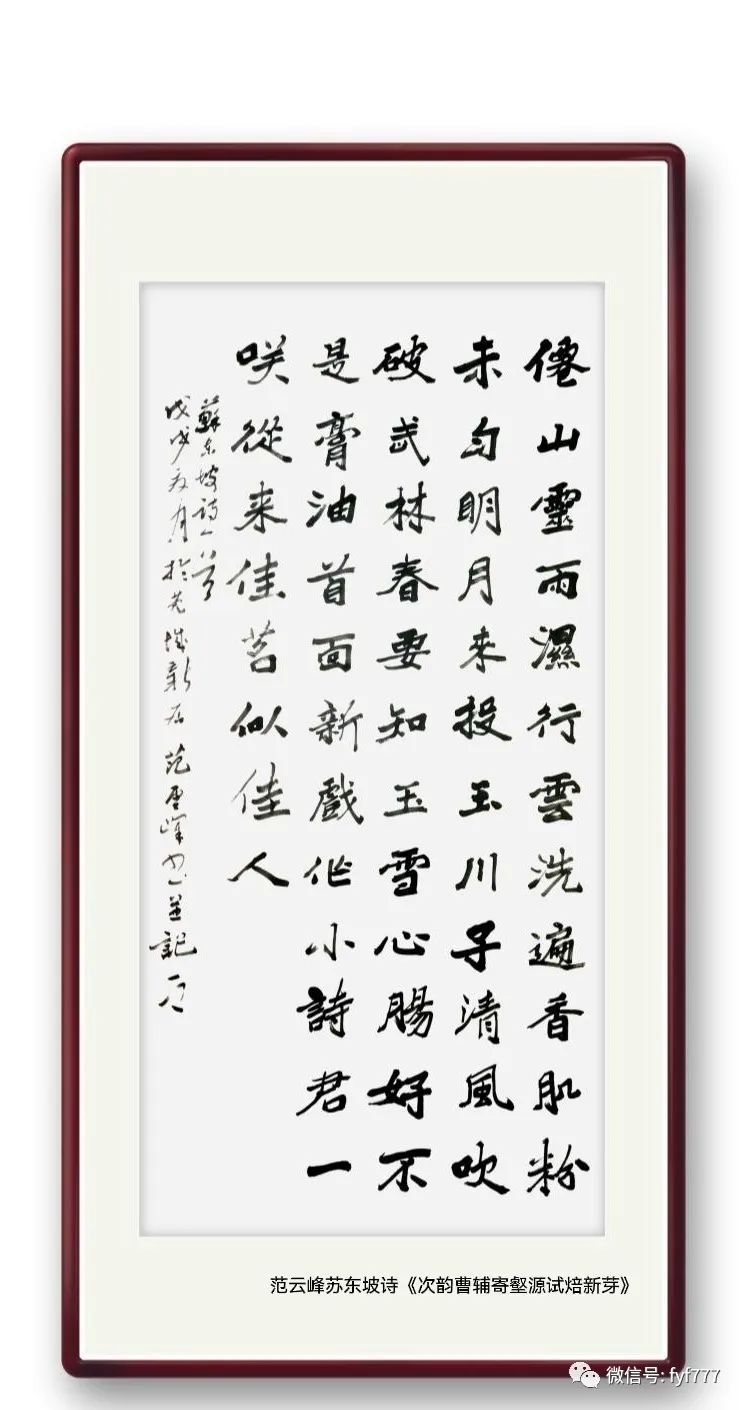 僊山靈雨濕行雲洗遍香肌粉
未匀明月来投玉川子清風吹
破武林春要知玉雪心腸好不
是膏油首面新戲作小詩君一
咲從来佳茗似佳人
蘇东坡詩一首
戊戌月於城新居范雲峰书並記
范云峰苏东坡诗《次韵曹辅寄壑源试焙新芽》
微信号: fyf777